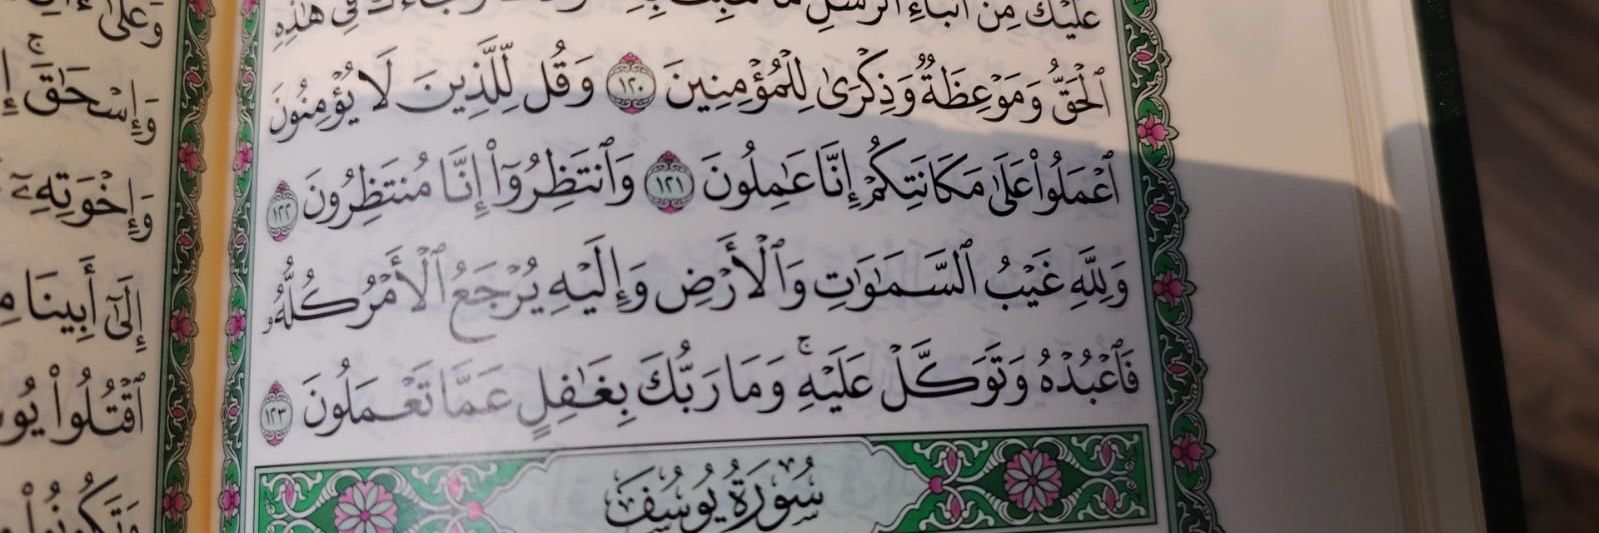 عَلَيْكَ مِنْ أَنۢبَآءِ ٱلرُّسُلِ مَا فِى هَٰذِهِ
ٱلْحَقُّ وَمَوْعِظَةٌ وَذِكْرَىٰ لِلْمُؤْمِنِينَ ١٢٠ وَقُل لِّلَّذِينَ لَا يُؤْمِنُونَ
ٱعْمَلُوا۟ عَلَىٰ مَكَانَتِكُمْ إِنَّا عَٰمِلُونَ ١٢١ وَٱنتَظِرُوٓا۟ إِنَّا مُنتَظِرُونَ ١٢٢
وَلِلَّهِ غَيْبُ ٱلسَّمَٰوَٰتِ وَٱلْأَرْضِ وَإِلَيْهِ يُرْجَعُ ٱلْأَمْرُ كُلُّهُۥ
فَٱعْبُدْهُ وَتَوَكَّلْ عَلَيْهِ ۚ وَمَا رَبُّكَ بِغَٰفِلٍ عَمَّا تَعْمَلُونَ ١٢٣
سُورَةُ يُوسُفَ
وَعَلَىٰ
وَإِسْحَٰقَ ۚ
وَإِخْوَتِهِۦٓ
إِلَىٰٓ أَبِينَا
ٱقْتُلُوا۟
وَتَكُونُوا۟